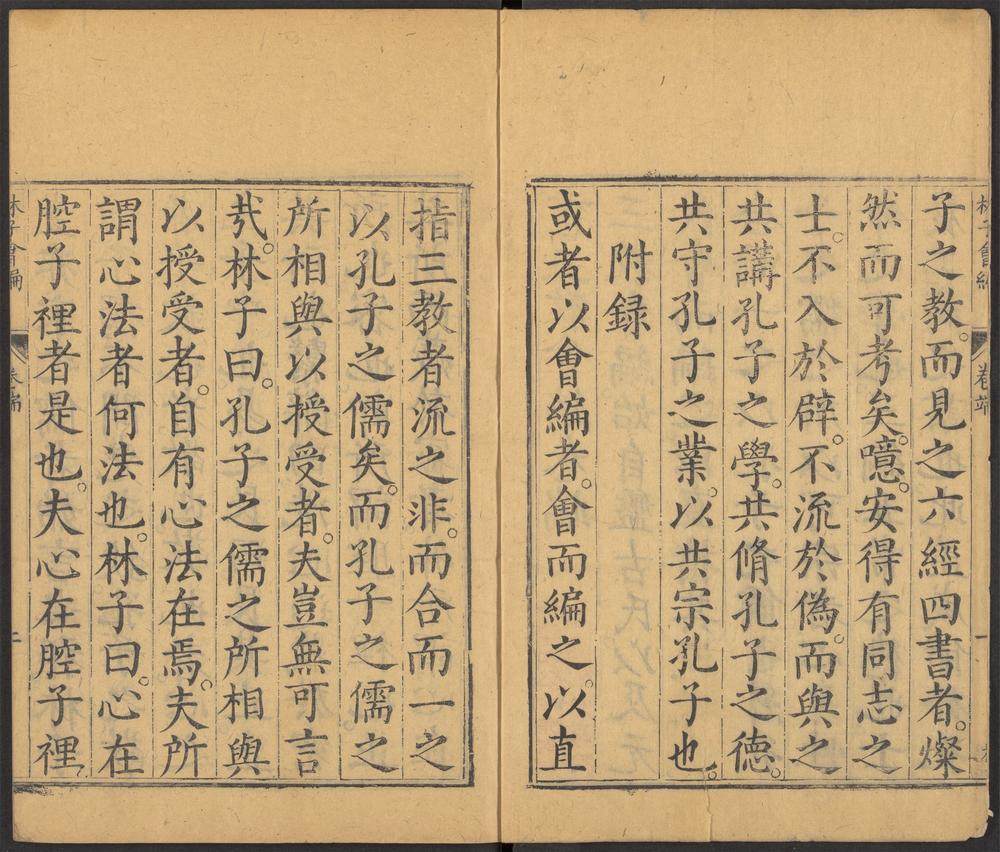 林子會編
卷端
子之教。而見之六經四書者。燦
然而可考矣。噫。安得有同志之
士。不入於辟。不流於偽。而與之
共講孔子之學。共脩孔子之德。
共守孔子之業。以共宗孔子也。
附録
或者以會編者。會而編之。以直
指三教者流之非。而合而一之
以孔子之儒矣。而孔子之儒之
所相與以授受者。夫豈無可言
㢤。林子曰。孔子之儒之所相與
以授受者。自有心法在焉。夫所
謂心法者何法也。林子曰。心在
腔子裡者是也。夫心在腔子裡
林子會編
卷端
二